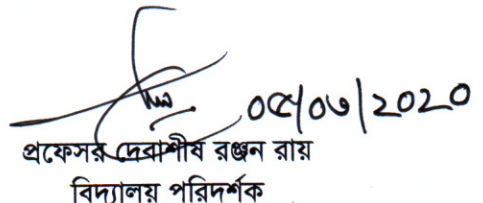 ০৫/০৩/২০২০
প্রফেসর দেবাশীষ রঞ্জন রায়
বিদ্যালয় পরিদর্শক